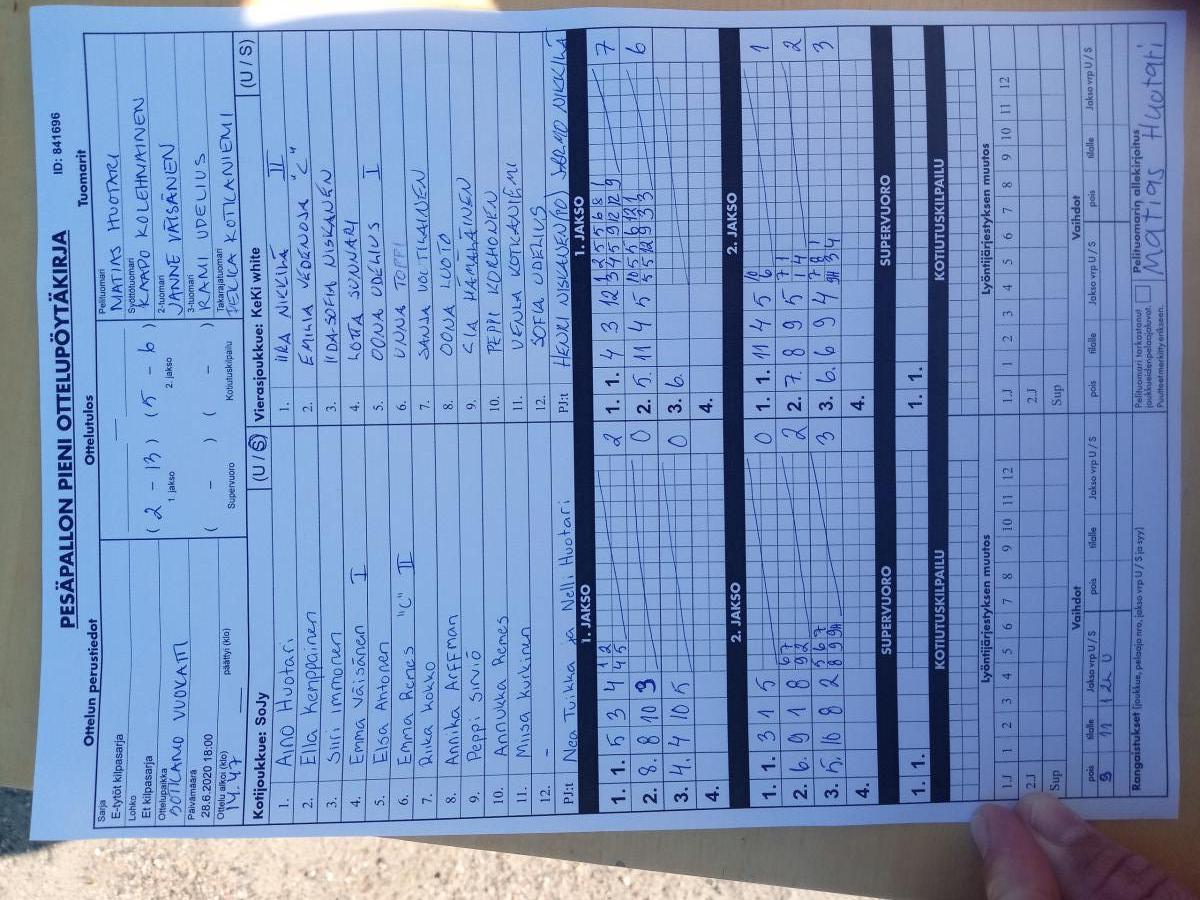 PESÄPALLON PIENI OTTELUPÖYTÄKIRJA
ID: 841696
Ottelun perustiedot
Ottelutulos
Tuomarit
Sarja
E-tytöt kilpasarja
Lohko
Et kilpasarja
Ottelupaikka
Päivämäärä
28.6.2020 18:00
Ottelu alkoi (klo)
päättyi (klo)
( 2 - 13 ) ( 5 - 6 )
1. jakso
2. jakso
( - ) ( - )
Supervuoro
Kotiutuskilpailu
Pelituomari
MATIAS HUOTARI
Syöttötuomari
KAAPO KOLEHMAINEN
2-tuomari
JANNE VÄISÄNEN
3-tuomari
RAMI UDELIUS
Takarajatuomari
PEKKA KOTKANIEMI
Kotijoukkue: SoJy (U / S)
1. Aino Huotari
2. Ella Kemppainen
3. Siiri Immonen
4. Emma Väisänen I
5. Elsa Antonen
6. Emma Remes "C" II
7. Riika Kokko
8. Annika Arffman
9. Peppi Sirviö
10. Annukka Remes
11. Miisa Kurkinen
12. -
PJ:t Nea Tuikka ja Nelli Huotari
Vierasjoukkue: KeKi white (U / S)
1. IIRA NIKKILÄ II
2. EMILIA VEDENOJA "C"
3. IIDA-SOFIA NISKANEN
4. LOTTA SUNNARI
5. OONA UDELIUS I
6. UNNA TOPPI
7. SANJA VOUTILAINEN
8. OONA LUOTO
9. CIA HÄMÄLÄINEN
10. PEPPI KORHONEN
11. VENLA KOTKANIEMI
12. SOFIA UDELIUS
PJ:t HENRI NISKANEN (10) JARMO NIKKILÄ
1. JAKSO
1. 1. 5 3 4
2
2. 8. 8 10 3
0
3. 4. 4 10 5
0
4.
1. JAKSO
1. 1. 4 3 12
7
2. 5. 11 4 5
6
3. 6.
4.
2. JAKSO
1. 1. 3 1 5
0
2. 6. 9 1 8
2
3. 5. 10 8 2
3
4.
2. JAKSO
1. 1. 11 4 5
1
2. 7. 8 9 5
2
3. 6. 6 9 4
3
4.
SUPERVUORO
1. 1.
SUPERVUORO
1. 1.
KOTIUTUSKILPAILU
KOTIUTUSKILPAILU
Lyöntijärjestyksen muutos
1.J 1 2 3 4 5 6 7 8 9 10 11 12
2.J
Sup
Lyöntijärjestyksen muutos
1.J 1 2 3 4 5 6 7 8 9 10 11 12
2.J
Sup
Vaihdot
pois tilalle Jakso vrp U / S pois tilalle Jakso vrp U / S
Vaihdot
pois tilalle Jakso vrp U / S pois tilalle Jakso vrp U / S
Rangaistukset (joukkue, pelaaja nro, jakso vrp U / S ja syy)
Pelituomari tarkastanut
joukkueidenpelaajaluvat.
Puutteet merkitty erikseen.
Pelituomarin allekirjoitus
Matias Huotari